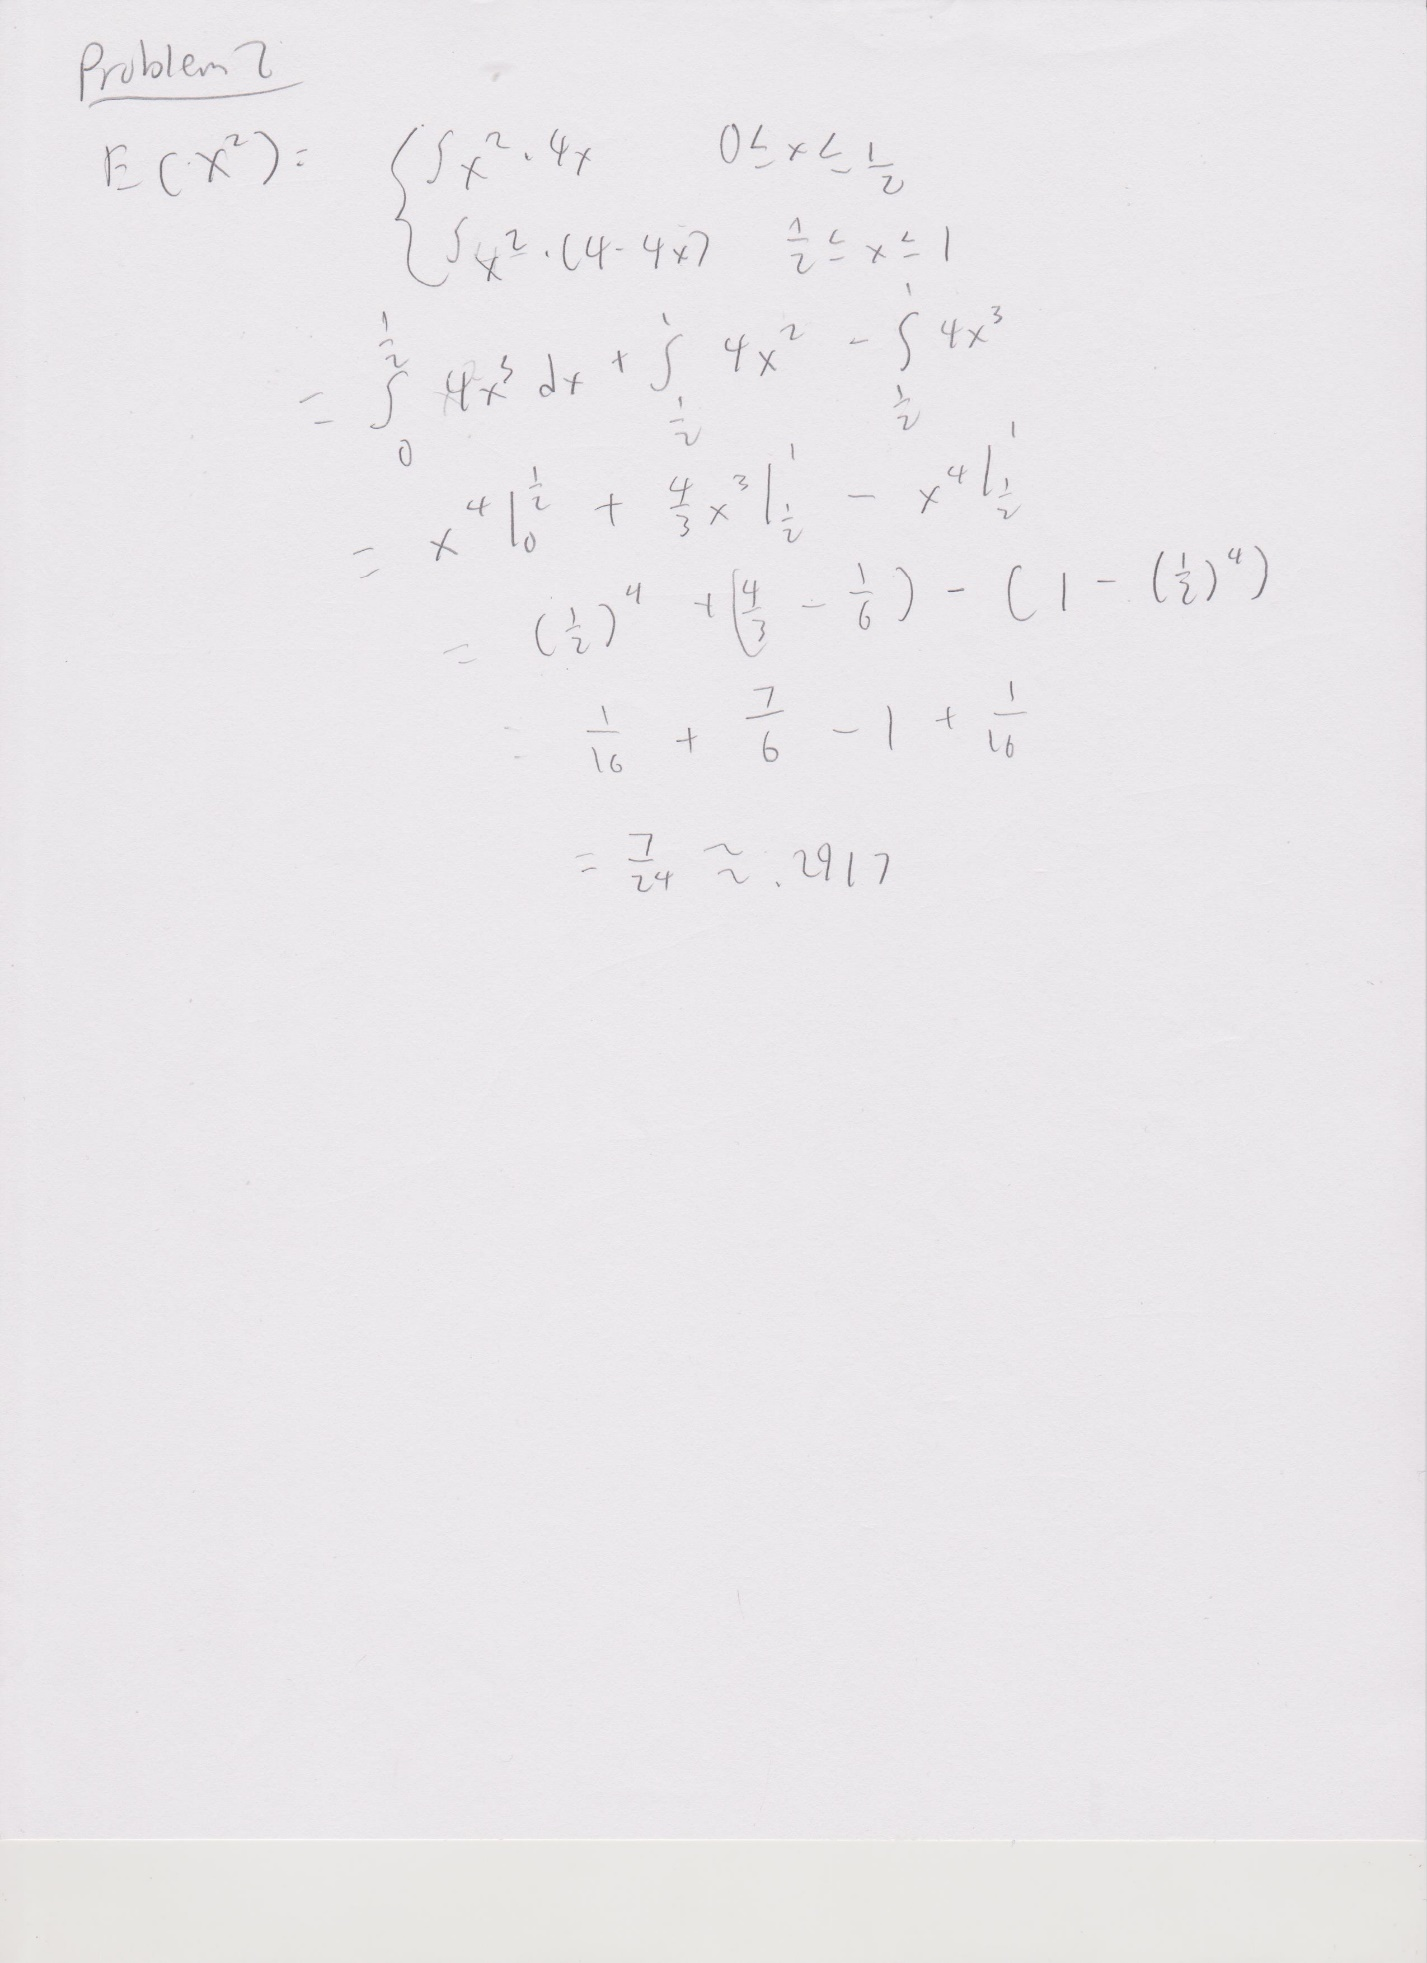 Problem 2
E(X²) = { ∫x² · 4x 0 ≤ x ≤ 1/2
∫x² · (4-4x) 1/2 ≤ x ≤ 1
= ∫₀^{1/2} 4x³ dx + ∫_{1/2}^1 4x² - ∫_{1/2}^1 4x³
= x⁴|₀^{1/2} + 4/3 x³|_{1/2}^1 - x⁴|_{1/2}^1
= (1/2)⁴ + (4/3 - 1/6) - (1 - (1/2)⁴)
= 1/16 + 7/6 - 1 + 1/16
= 7/24 ≈ .2917